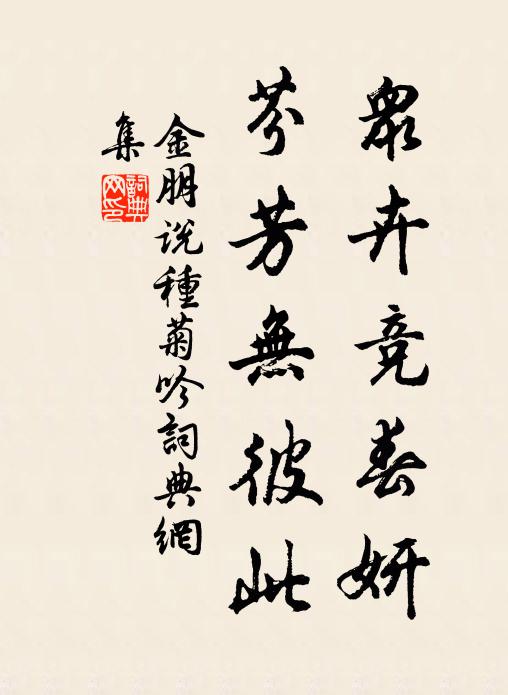 眾卉竞春妍
芬芳無彼此
金朋说種菊吟詞典網
集
詞典
网印